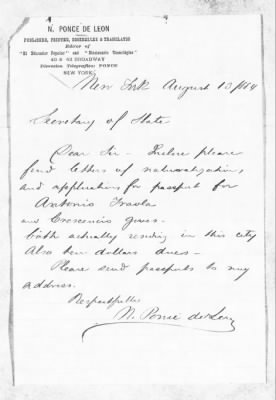 N. PONCE DE LEON
PUBLISHER, PRINTER, BOOKSELLER & TRANSLATOR
Editor of
"El Educador Popular" and "Diccionario Tecnológico"
40 & 42 BROADWAY
NEW YORK
New York August 13
Secretary of State
Dear Sir - Inclose please
find letters of naturalization,
and application for passport for
Antonio
and Crescencio
both actually residing in this city
Also ten dollars dues -
Please send passports to my
address.
Respectfully
N. Ponce de Leon